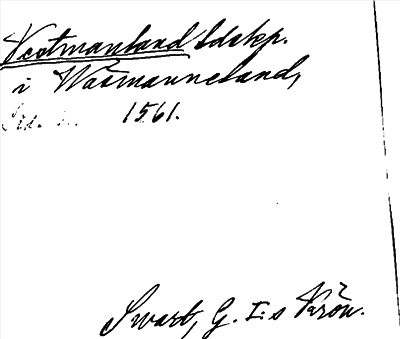 Västmanland ldskp.
i Wäsmanneland,
1561.
Swart, G. I:s Krön.